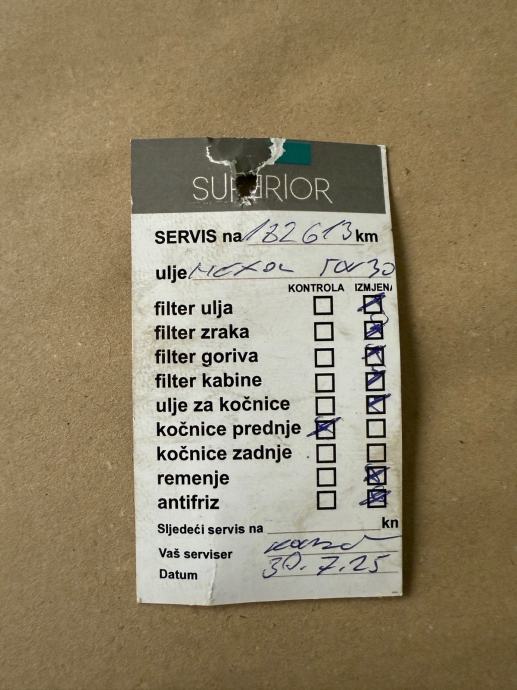 SUPERIOR
SERVIS na 182613 km
ulje
KONTROLA IZMJENA
filter ulja
filter zraka
filter goriva
filter kabine
ulje za kočnice
kočnice prednje
kočnice zadnje
remenje
antifriz
Sljedeći servis na kn
Vaš serviser
Datum 30.7.25